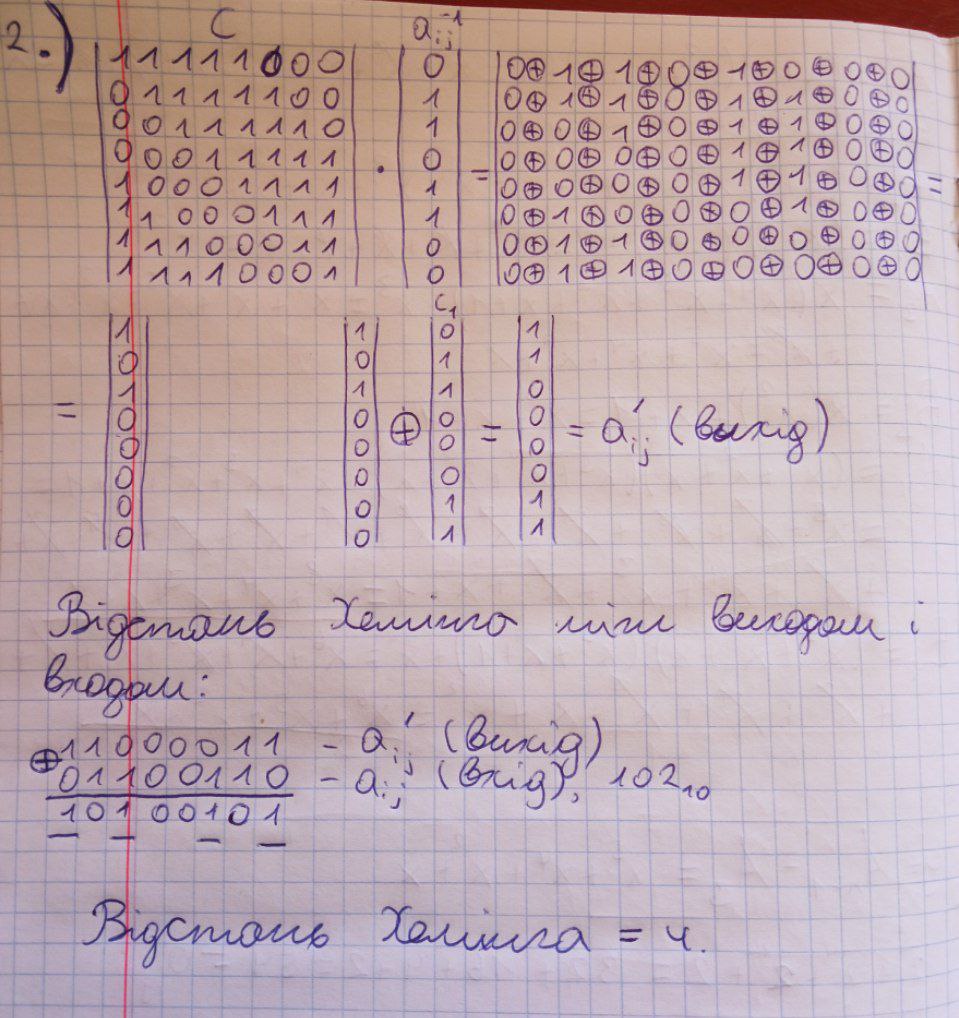 2.) C a_ij^-1
|1 1 1 1 1 0 0 0| |0| |0⊕1⊕1⊕0⊕1⊕0⊕0⊕0|
|0 1 1 1 1 1 0 0| |1| |0⊕1⊕1⊕0⊕1⊕1⊕0⊕0|
|0 0 1 1 1 1 1 0| |1| |0⊕0⊕1⊕0⊕1⊕1⊕0⊕0|
|0 0 0 1 1 1 1 1| · |0| = |0⊕0⊕0⊕0⊕1⊕1⊕0⊕0| =
|1 0 0 0 1 1 1 1| |1| |0⊕0⊕0⊕0⊕1⊕1⊕0⊕0|
|1 1 0 0 0 1 1 1| |1| |0⊕1⊕0⊕0⊕0⊕1⊕0⊕0|
|1 1 1 0 0 0 1 1| |0| |0⊕1⊕1⊕0⊕0⊕0⊕0⊕0|
|1 1 1 1 0 0 0 1| |0| |0⊕1⊕1⊕0⊕0⊕0⊕0⊕0|
C₁
|1| |1| |0| |1|
|0| |0| |1| |1|
|1| |1| |1| |0|
= |0| |0| ⊕ |0| = |0| = a'_ij (вихід)
|0| |0| |0| |0|
|0| |0| |0| |0|
|0| |0| |1| |1|
|0| |0| |1| |1|
Відстань Хемінга між виходом і
входом:
⊕11000011 - a'_ij (вихід)
01100110 - a_ij (вхід), 102₁₀
10100101
Відстань Хемінга = 4.